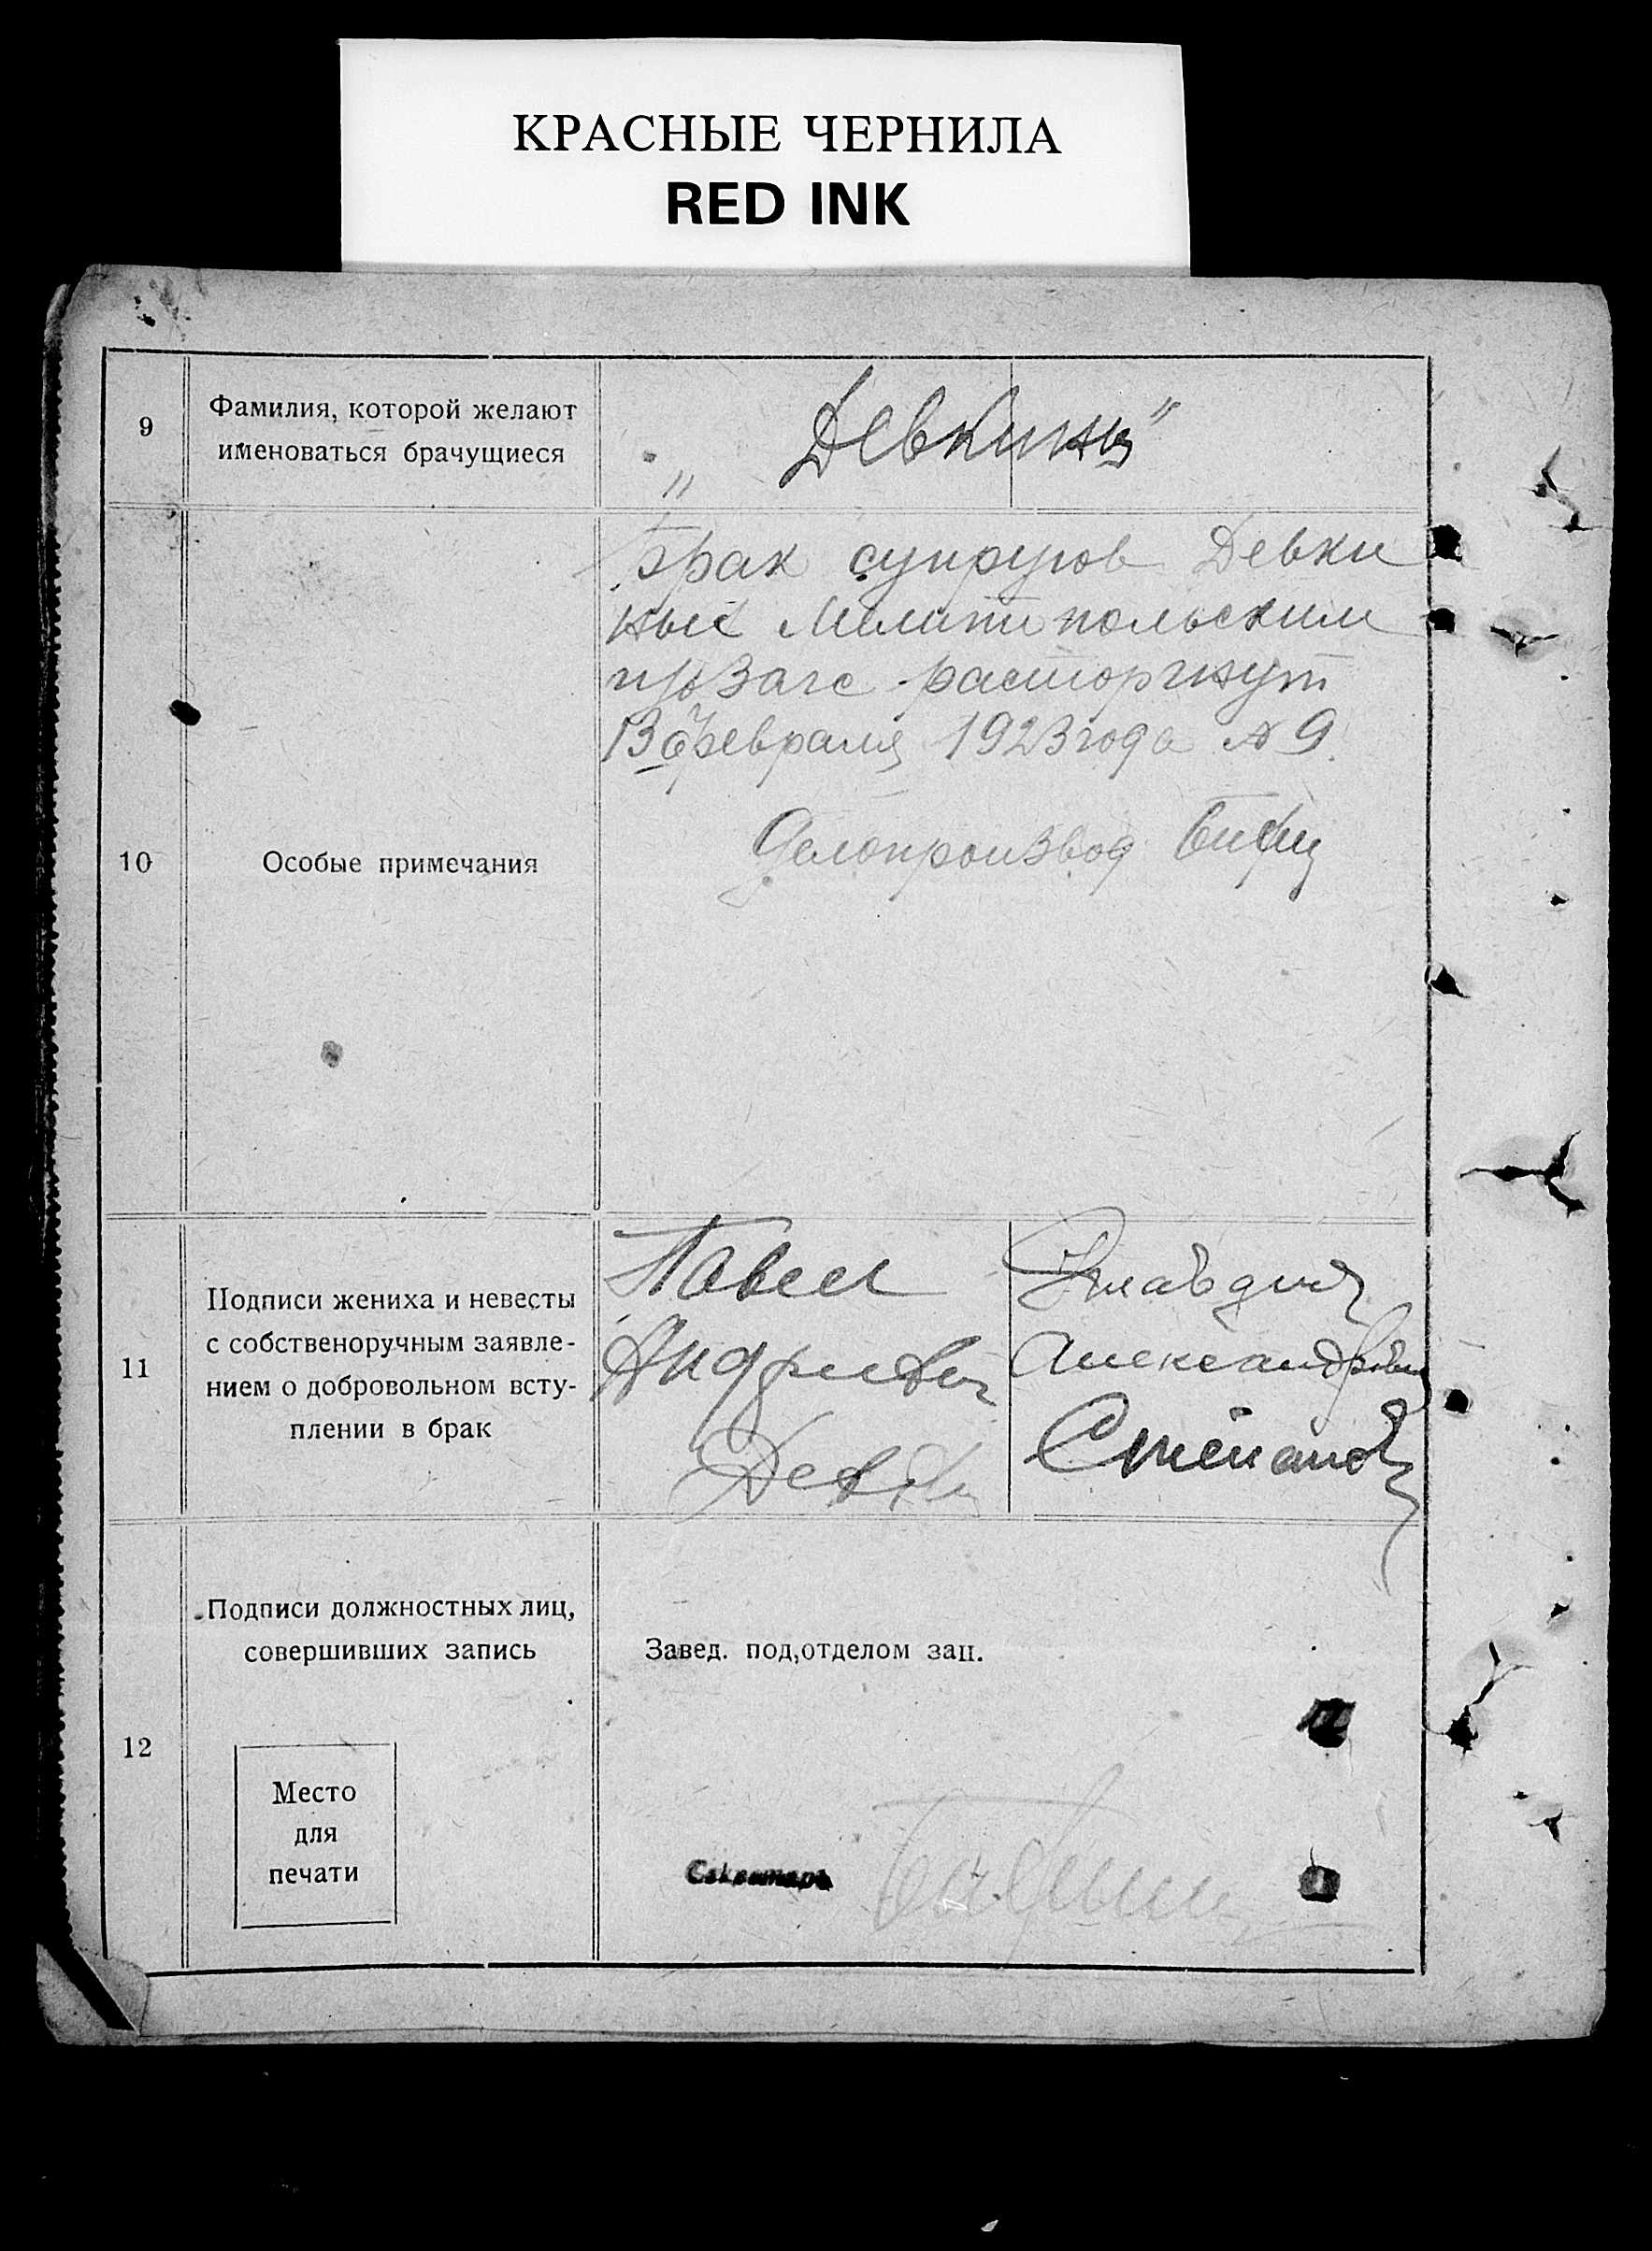 КРАСНЫЕ ЧЕРНИЛА
RED INK
9
Фамилия, которой желают
именоваться брачущиеся
„Девкины"
10
Особые примечания
Брак супругов Девки
ных Мелитипольским
п/о Загс расторгнут
13 февраля 1923 года № 9.
Делопроизвод
11
Подписи жениха и невесты
с собственоручным заявле-
нием о добровольном всту-
плении в брак
Павел
Андреевич
Клавдия
Александровна
Степанова
12
Подписи должностных лиц,
совершивших запись
Завед. под,отделом зап.
Место
для
печати
Секретарь